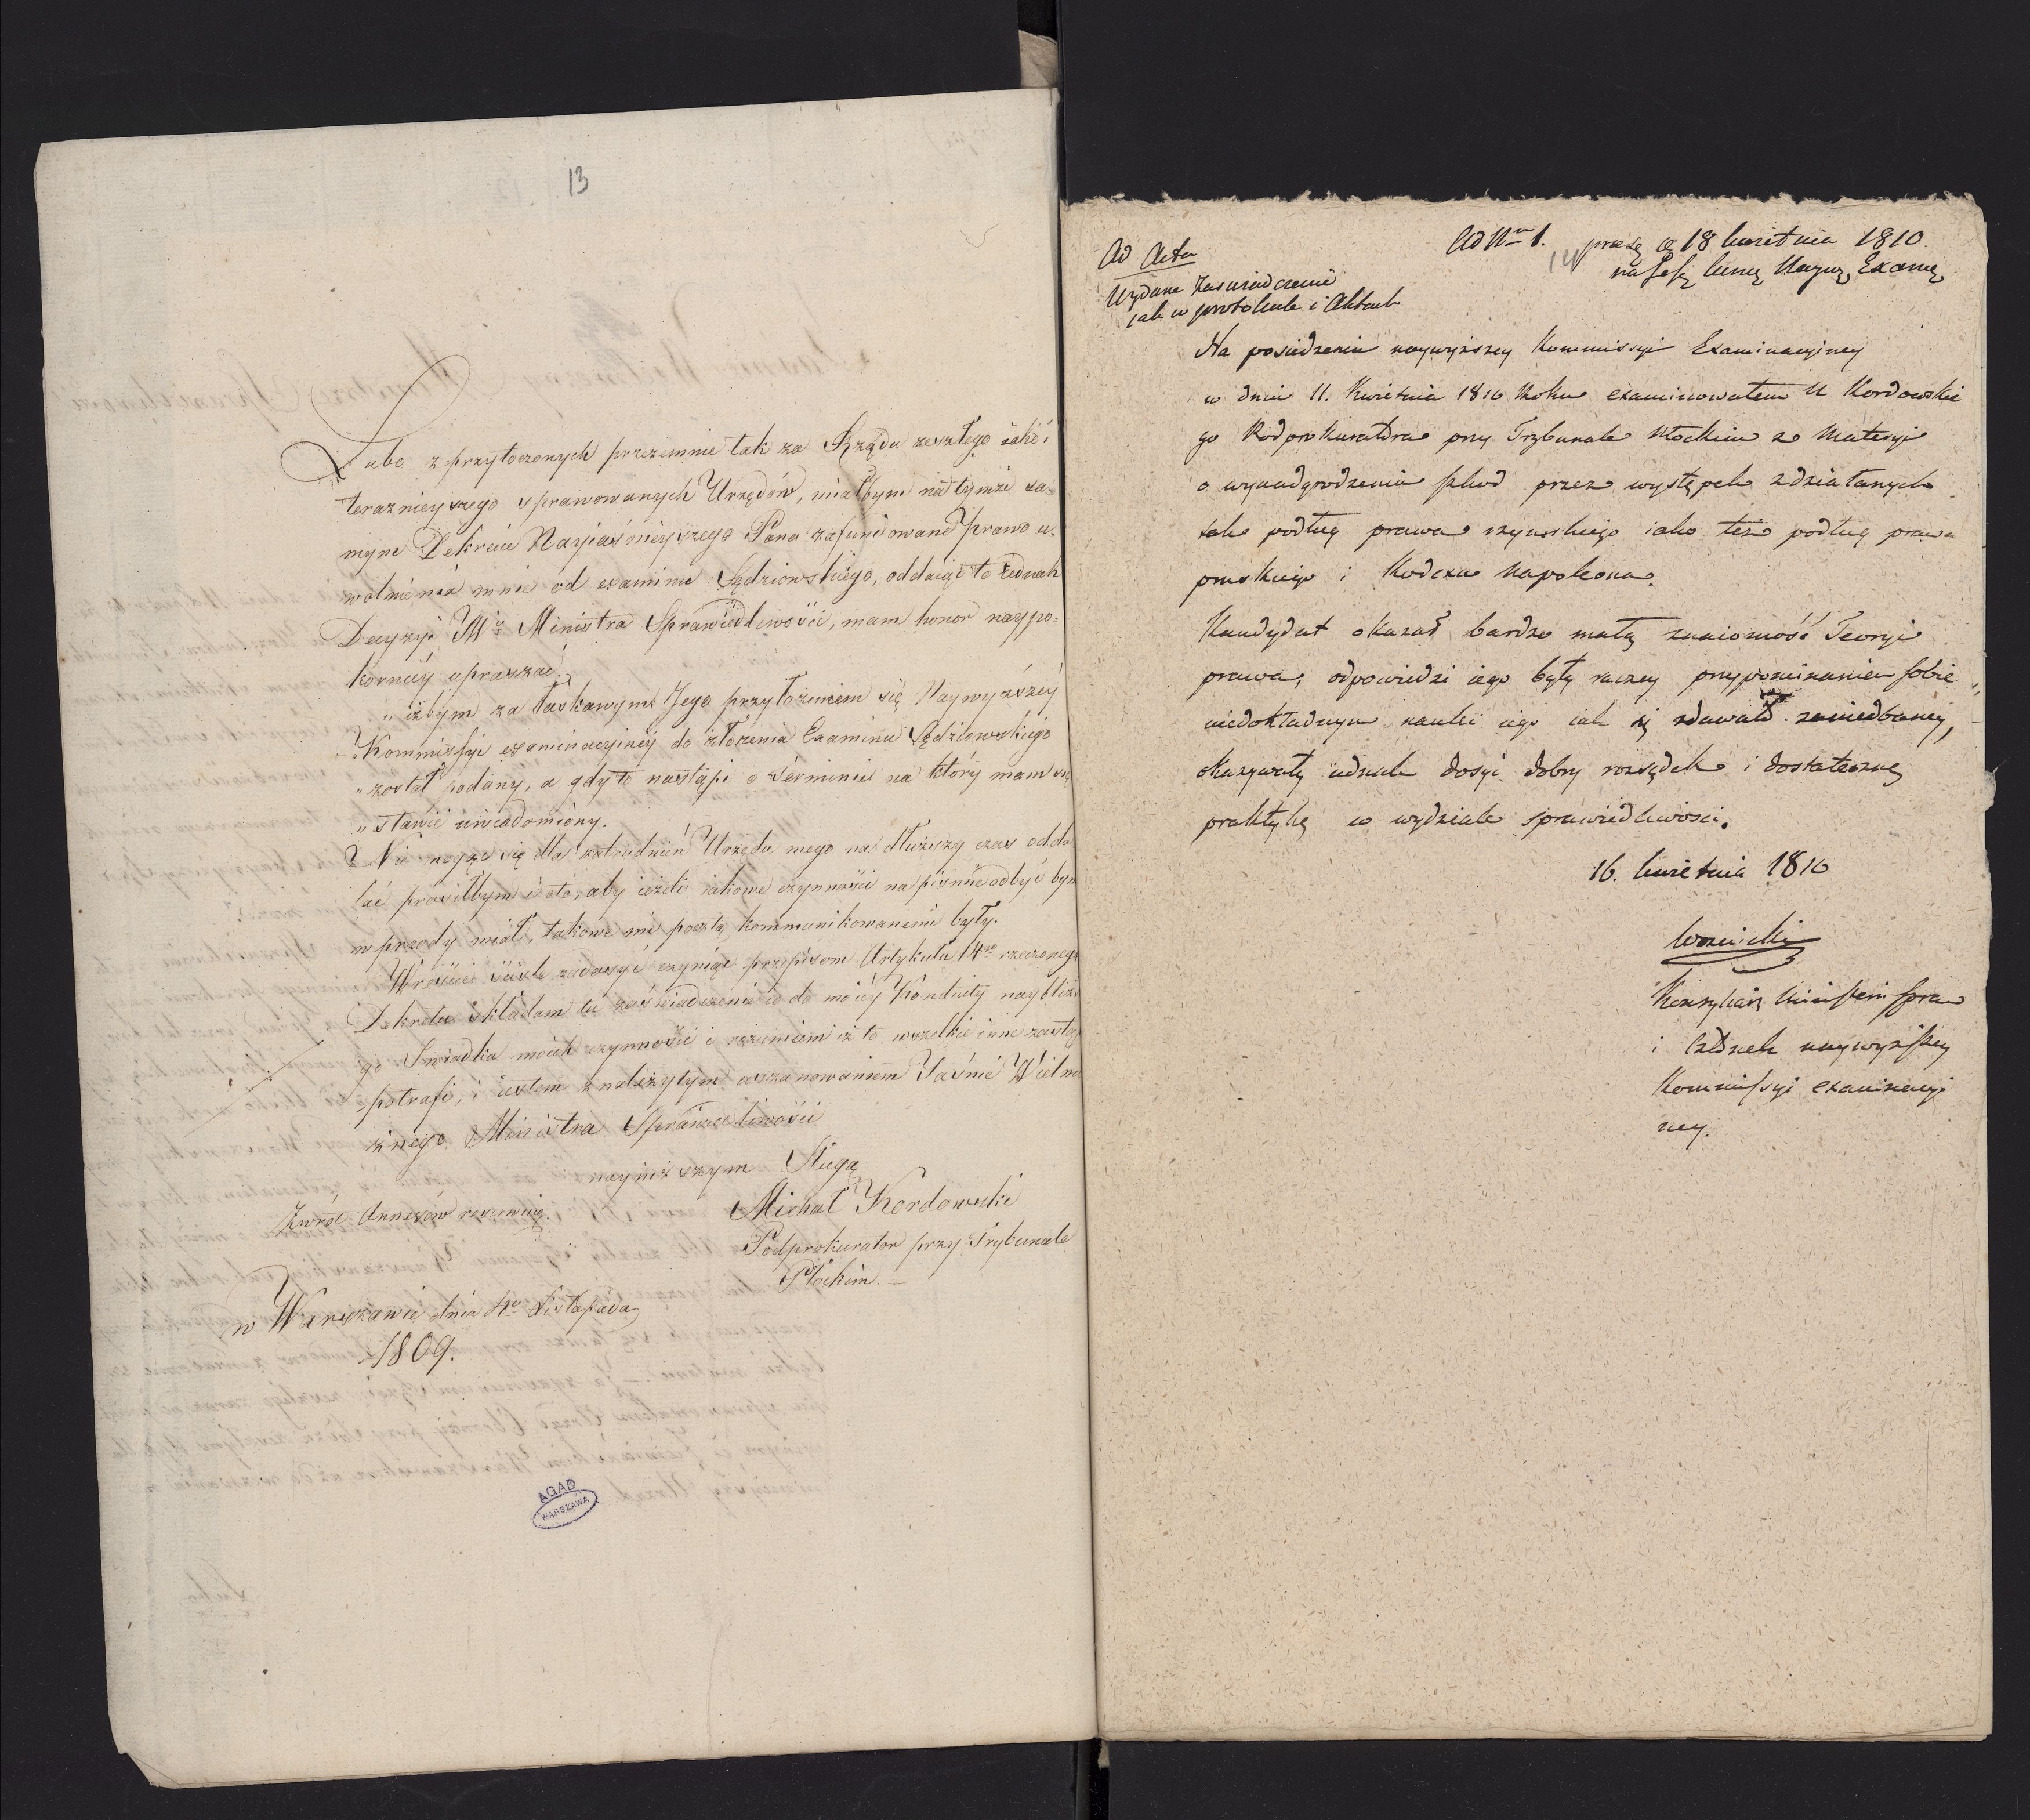 13
Lubo z przytoczonych przezemnie tak za Rządu zeszłego iako i
teraznieyszego sprawowanych Urzędów, miałbym na tymże sa-
mym Dekrecie Nayiaśnieyszego Pana zafundowane prawo u-
wolnienia mnie od examinu Sędziowskiego, oddaiąc to iednak
Decyzyi JW Ministra Sprawiedliwości, mam honor naypo-
korniey upraszać.
„ iżbym za łaskawym Jego przyłożeniem się Naywyższey
„ Kommissyi examinacyiney do złożenia Examinu Sędziowskiego
„ został podany, a gdy to nastąpi o terminie na który mam się
„ stawić uwiadomiony.
Nie mogąc się dla zatrudnień Urzędu mego na dłuższy czas odda-
lać prosiłbym i oto, aby ieżeli iakowe czynności na piśmie odbyć bym
w przody miał, takowe mi pocztą kommunikowanemi były.
Wreście ściśle zadosyć czyniąc przepisom Artykułu 14go rzeczonego
Dekretu składam tu zaświadczenie do moiey Konduity naybliższe-
go Świadka moich czynności i rozumiem iż to wszelkie inne zastąpić
potrafi, i iestem z należytym uszanowaniem Jaśnie Wielmo-
żnego Ministra Sprawiedliwości
nayniższym Sługą
Michał Kordowski
Podprokurator przy Trybunale
Płockim. –
Zwrót Annexów rezerwuię.
w Warszawie dnia 4go Listopada
1809.
AGAD
WARSZAWA
Ad Acta
Wydane Zaswiadczenie
iak w protokule i Aktach
Ad Nrm 1.
14
praes. d. 18 kwietnia 1810.
na Sess. Naywyż. Exam.
Na posiedzeniu naywyższey Kommissyi Examinacyiney
w dniu 11. Kwietnia 1810 Roku examinowałem U Kordowskie
go Podprokuratora przy Trybunale Płockim z Materyi
o wynadgrodzeniu szkod przez występek zdziałanych
tak podług prawa rzymskiego iako też podług prawa
pruskiego i Kodexu Napoleona.
Kandydat okazał bardzo małą znaiomość Teoryi
prawa, odpowiedzi iego były raczey przypominaniem sobie
niedokładnym nauki iego iak się zdawało zaniedbaney,
okazywały iednak dosyć dobry rozsądek i dostateczną
praktykę w wydziale sprawiedliwości.
16. kwietnia 1810
Woznicki
Kommissyi examinacyi
ney.